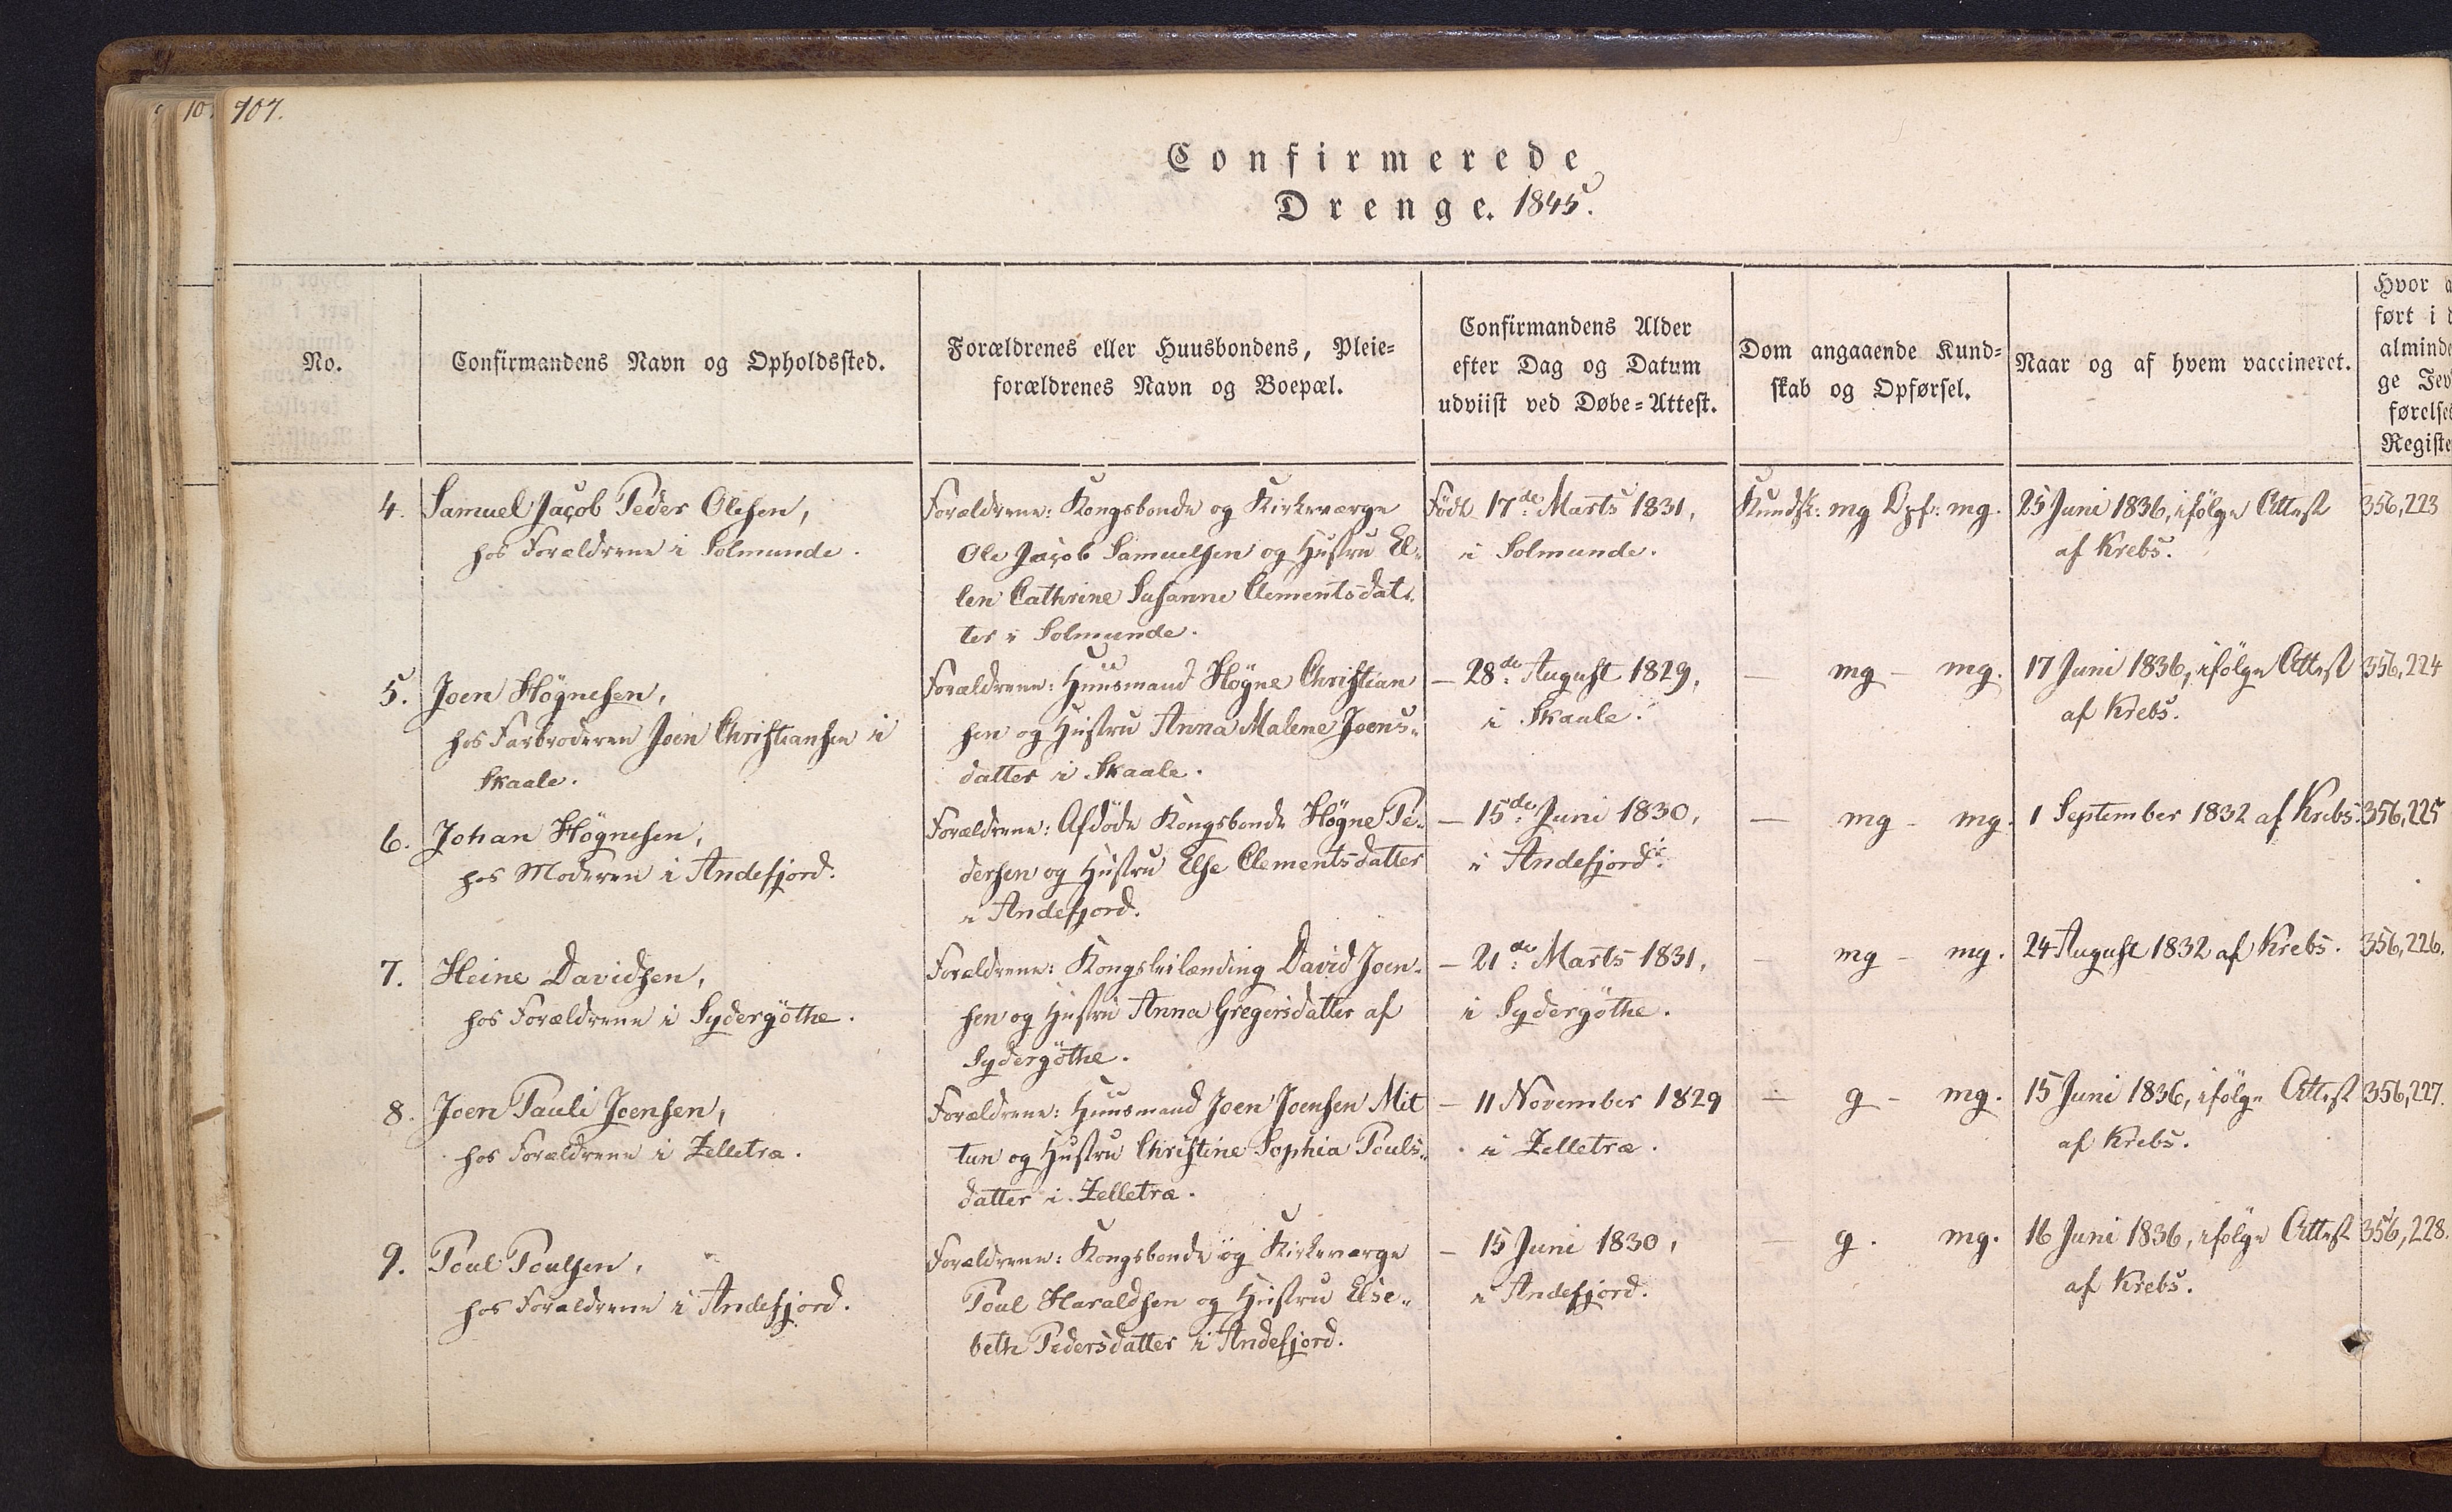 107.
10
Confirmerede
Drenge. 1845.
No.
Confirmandens Navn og Opholdssted.
Forældrenes eller Huusbondens, Pleie=
forældrenes Navn og Boepæl.
Confirmandens Alder
efter Dag og Datum
udviist ved Døbe=Attest.
Dom angaaende Kund=
skab og Opførsel.
Naar og af hvem vaccineret.
Hvor a
ført i d
alminde
ge Jev
førelse
Registe
4.
Samuel Jacob Peder Olesen,
hos Forældrene i Solmunde.
Forældrene: Kongsbonde og Kirkeværge
Ole Jacob Samuelsen og Hustru El-
len Cathrine Susanne Clementsdat-
ter i Solmunde.
Födt 17de Marts 1831,
i Solmunde.
Kundsk: mg Opf: mg.
25 Juni 1836, ifölge Attest
af Krebs.
356,223
5.
Joen Högnesen,
hos Farbroderen Joen Christiansen i
Skaale.
Forældrene: Huusmand Högne Christian
sen og Hustru Anna Malene Joens-
datter i Skaale.
— 28de August 1829,
i Skaale.
— mg — mg.
17 Juni 1836, ifölge Attest
af Krebs.
356,224
6.
Johan Högnesen,
hos Moderen i Andefjord.
Forældrene: Afdöde Kongsbonde Högne Pe-
dersen og Hustru Else Clementsdatter
i Andefjord.
— 15de Juni 1830,
i Andefjord.
— mg — mg.
1 September 1832 af Krebs.
356,225
7.
Heine Davidsen,
hos Forældrene i Sydergöthe.
Forældrene: Kongsleilænding David Joen-
sen og Hustru Anna Gregersdatter af
Sydergöthe.
— 21de Marts 1831,
i Sydergöthe.
— mg — mg.
24 August 1832 af Krebs.
356,226.
8.
Joen Pauli Joensen,
hos Forældrene i Zelletræ.
Forældrene: Huusmand Joen Joensen Mit
tun og Hustru Christine Sophia Pouls-
datter i Zelletræ.
— 11 November 1829
i Zelletræ.
— g — mg.
15 Juni 1836, ifölge Attest
af Krebs.
356,227.
9.
Poul Poulsen,
hos Forældrene i Andefjord.
Forældrene: Kongsbonde og Kirkeværge
Poul Haraldsen og Hustru Else-
beth Pedersdatter i Andefjord.
— 15 Juni 1830,
i Andefjord.
— g. mg.
16 Juni 1836, ifölge Attest
af Krebs.
356,228.